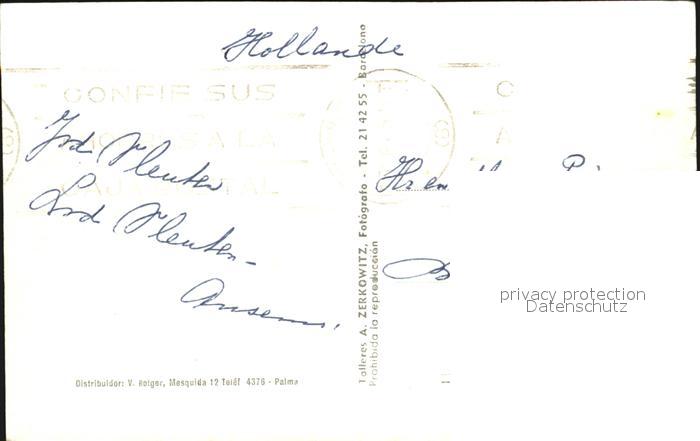 Hollande
CONFIE SUS
A LA
CAJA POSTAL
Jrd Vleuten
Lrd Vleuten-
Ansems.
Talleres A. ZERKOWITZ, Fotógrafo - Tel. 21 42 55 - Barcelona
Prohibida la reproducción
Distribuidor: V. Rotger, Mesquida 12 Teléf 4376 - Palma
privacy protection
Datenschutz